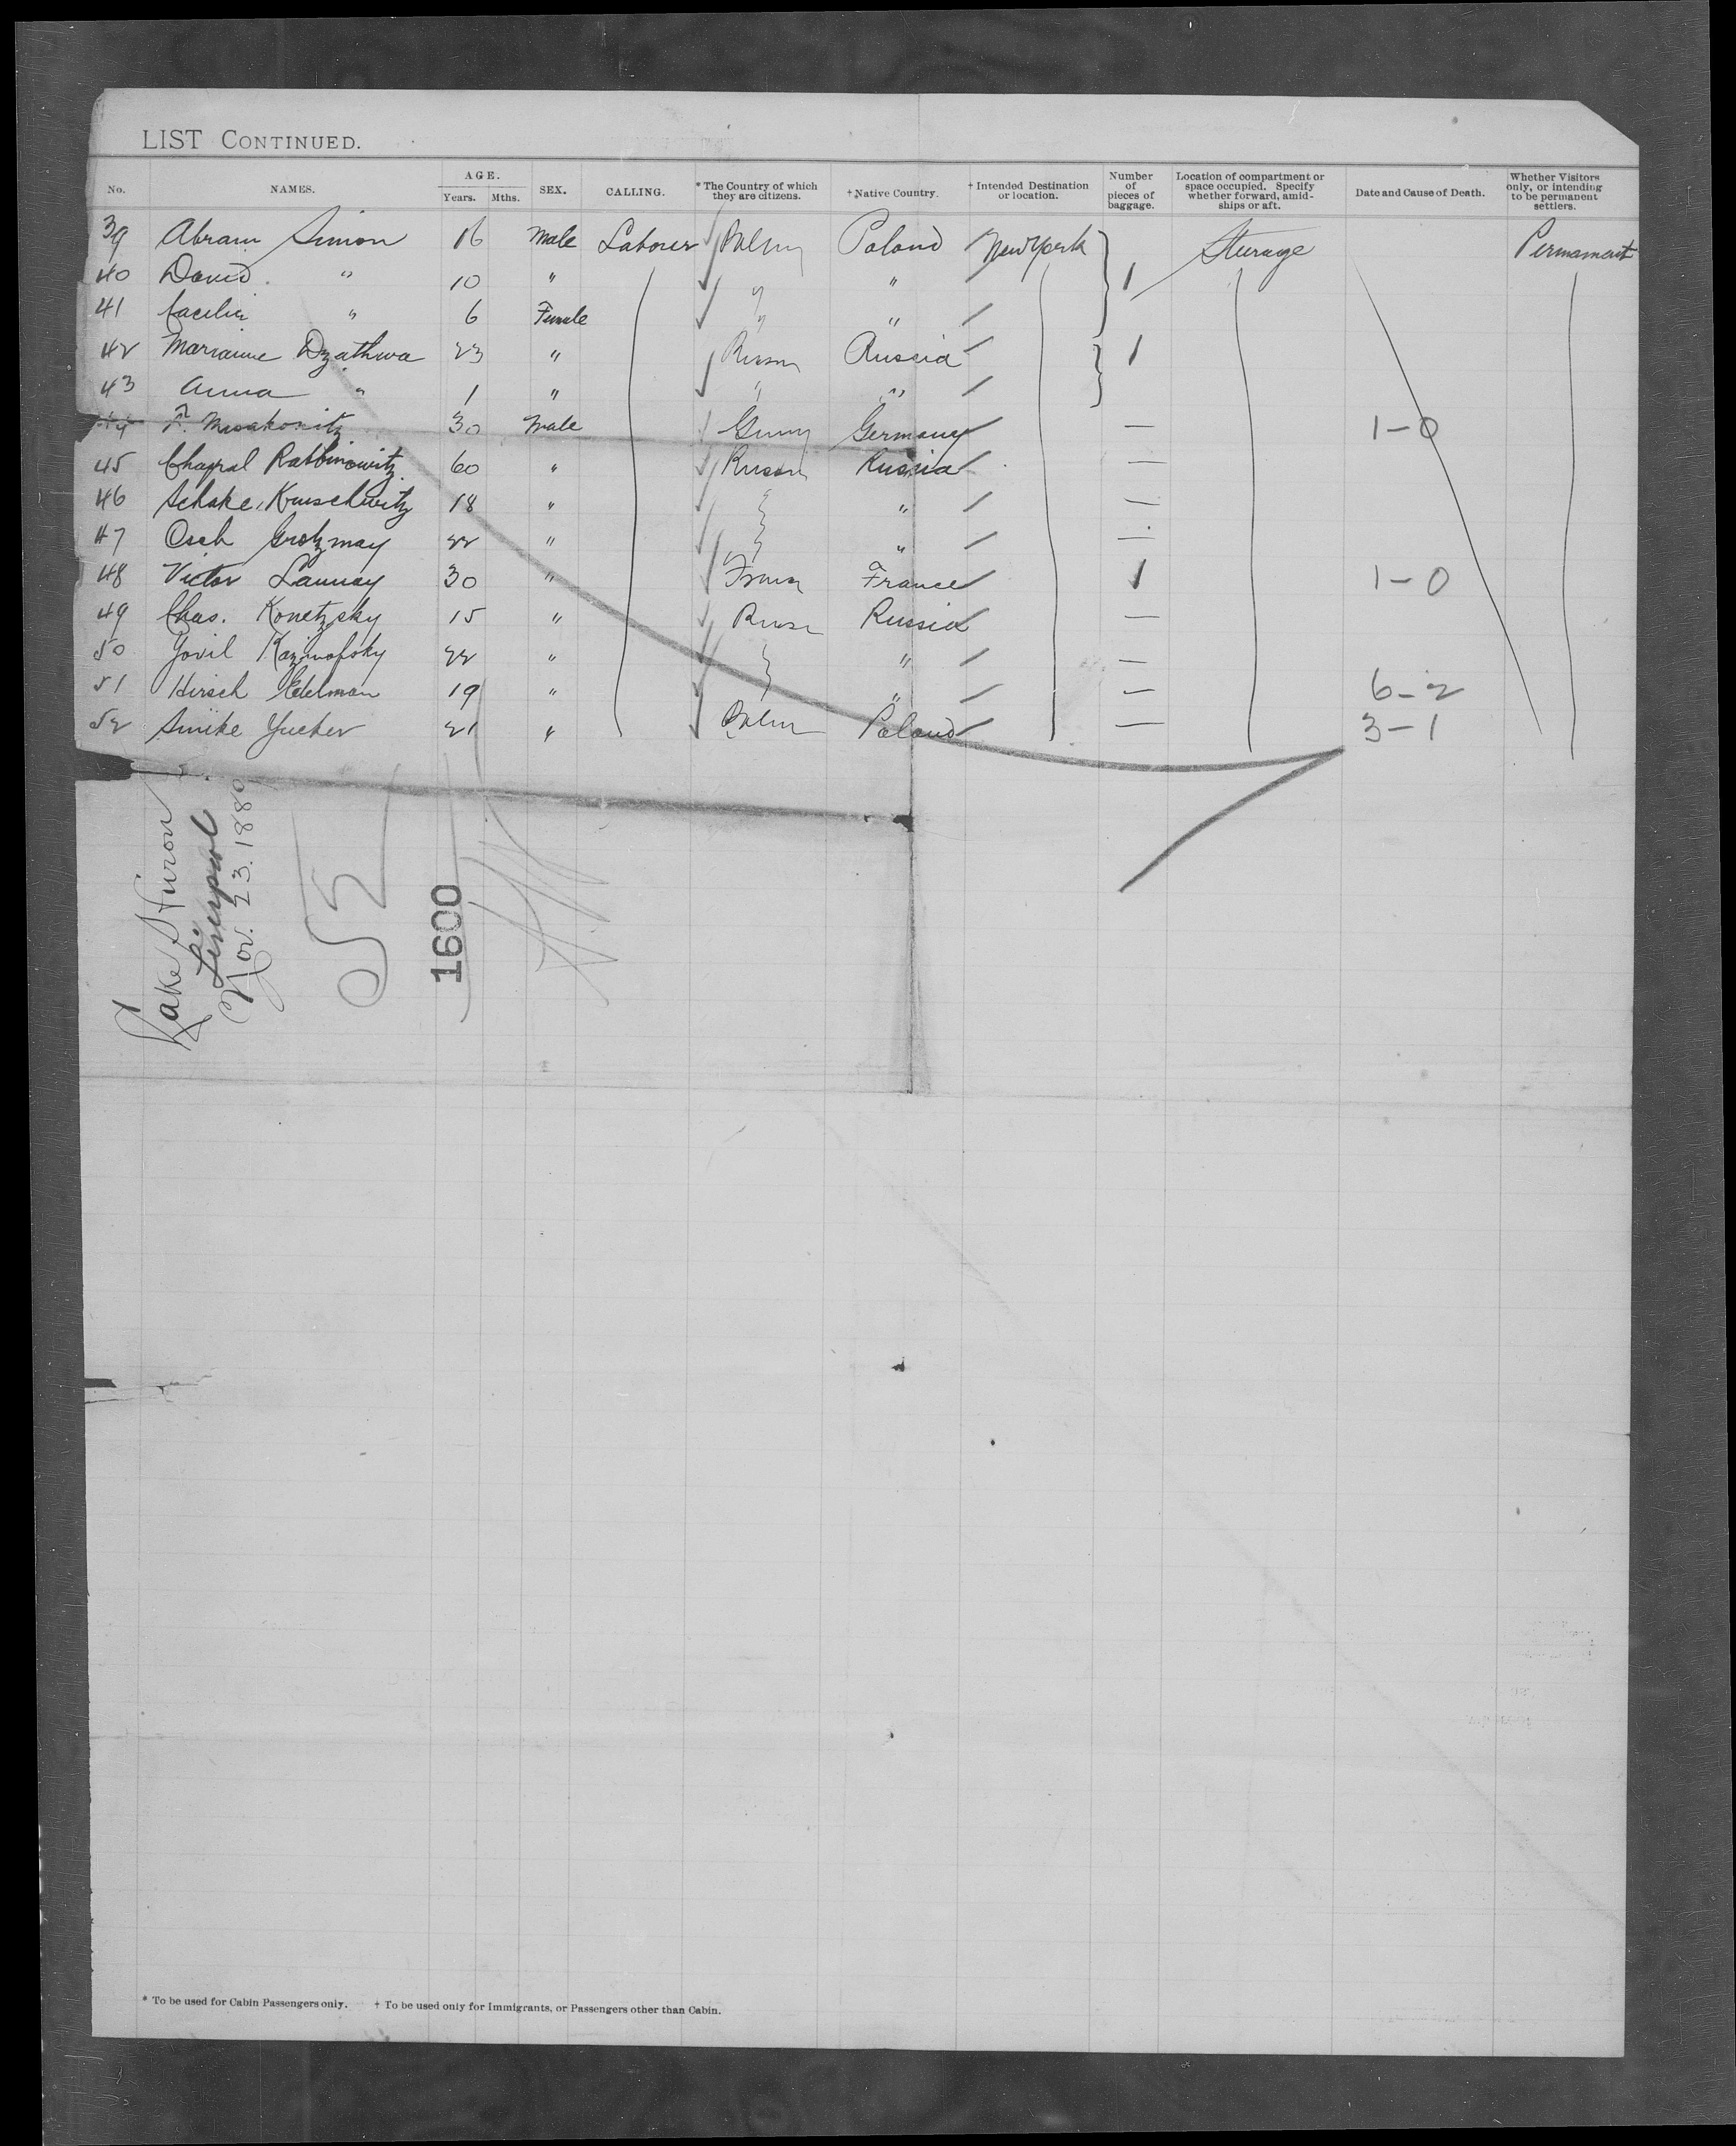 LIST CONTINUED.
No. NAMES. AGE. Years. Mths. SEX. CALLING. * The Country of which they are citizens. † Native Country. † Intended Destination or location. Number of pieces of baggage. Location of compartment or space occupied. Specify whether forward, amidships or aft. Date and Cause of Death. Whether Visitors only, or intending to be permanent settlers.
39 Abram Simon 16 Male Labourer Poland New York 1 Sturage Permament
40 David " 10 " "
41 " 6 Female "
42 Marianne Dzathwa 23 " Russia 1
43 Anna " 1 " "
44 F. 30 Male Germany — 1-0
45 Rabbinowitz 60 " Russia —
46 18 " " —
47 Osch Grotzmay 22 " " —
48 Victor Launay 30 " France 1 1-0
49 Chas. Konetzsky 15 " Russia —
50 22 " " —
51 Hirsch Edelman 19 " " — 6-2
52 Smike Yucker 21 " Poland — 3-1
Lake Huron
Liverpool
Nov. 23. 1889
1600
* To be used for Cabin Passengers only. † To be used only for Immigrants, or Passengers other than Cabin.